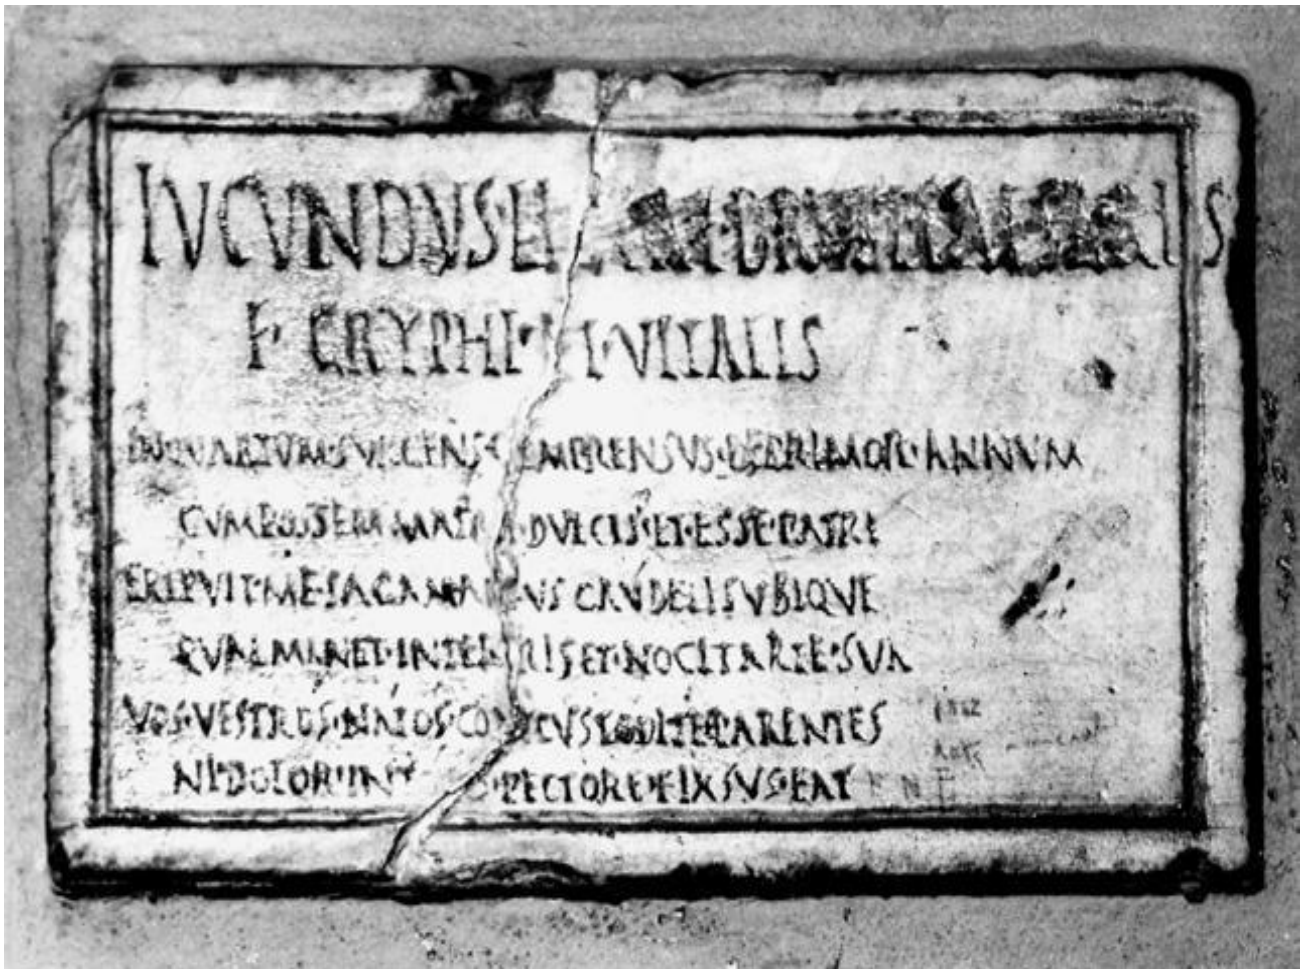 IVCVNDVS
F·GRYPHI·ET·VITALIS
IN·QVARTVM·SVRGENS·COMPRENSVS·DEPRIMOR·ANNVM
CVM·POSSEM·MATRI·DVLCIS·ET·ESSE·PATRI
ERIPVIT·ME·SAGA·MANVS CRVDELIS VBIQVE
MANET·IN·TERRIS·ET·NOCIT·ARTE·SVA
VOS·VESTROS·NATOS·CONCVSTODITE·PARENTES
NI·DOLOR·IN·TOTO·PECTORE·FIXSVS·EAT